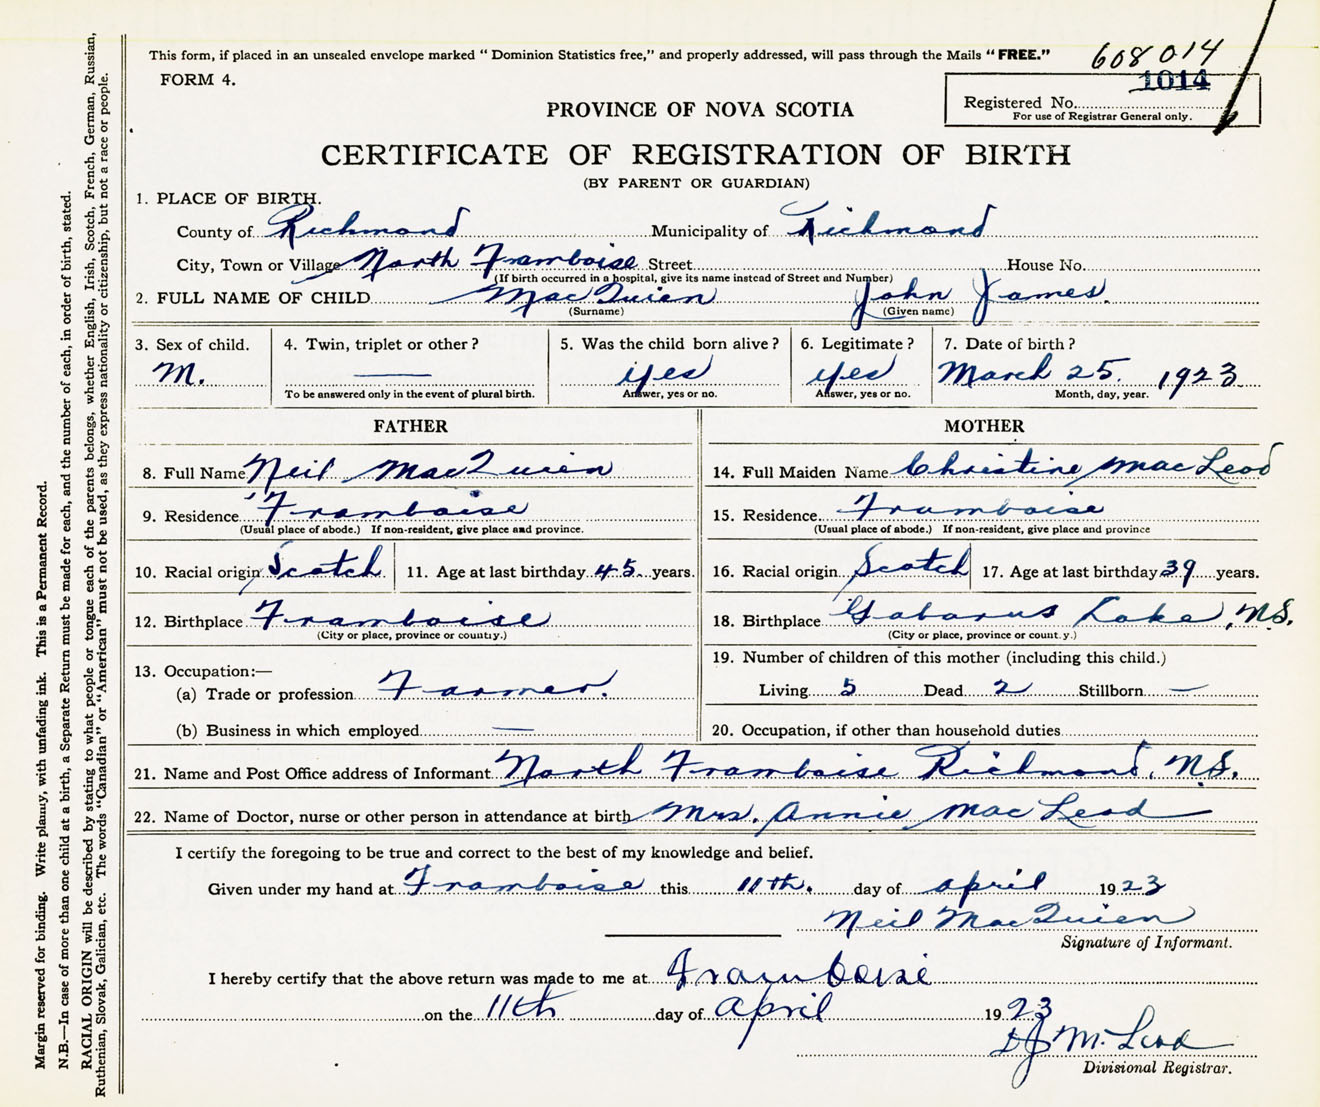 This form, if placed in an unsealed envelope marked "Dominion Statistics free," and properly addressed, will pass through the Mails "FREE."
608014
FORM 4.
1014
Registered No.
For use of Registrar General only.
PROVINCE OF NOVA SCOTIA
CERTIFICATE OF REGISTRATION OF BIRTH
(BY PARENT OR GUARDIAN)
1. PLACE OF BIRTH.
County of Richmond Municipality of Richmond
City, Town or Village North Framboise Street House No.
(If birth occurred in a hospital, give its name instead of Street and Number)
2. FULL NAME OF CHILD MacQuien John James
(Surname) (Given name)
3. Sex of child. 4. Twin, triplet or other? 5. Was the child born alive? 6. Legitimate? 7. Date of birth?
M. — yes yes March 25. 1923
To be answered only in the event of plural birth. Answer, yes or no. Answer, yes or no. Month, day, year.
FATHER MOTHER
8. Full Name Neil MacQuien 14. Full Maiden Name Christine MacLeod
9. Residence Framboise 15. Residence Framboise
(Usual place of abode.) If non-resident, give place and province. (Usual place of abode.) If non-resident, give place and province
10. Racial origin Scotch 11. Age at last birthday 45 years. 16. Racial origin Scotch 17. Age at last birthday 39 years.
12. Birthplace Framboise 18. Birthplace Gabarus Lake, N.S.
(City or place, province or country.) (City or place, province or country.)
13. Occupation:— 19. Number of children of this mother (including this child.)
(a) Trade or profession Farmer. Living 5 Dead 2 Stillborn —
(b) Business in which employed — 20. Occupation, if other than household duties
21. Name and Post Office address of Informant North Framboise Richmond, N.S.
22. Name of Doctor, nurse or other person in attendance at birth Mrs. Annie MacLeod
I certify the foregoing to be true and correct to the best of my knowledge and belief.
Given under my hand at Framboise this 11th. day of april 1923
Neil MacQuien
Signature of Informant.
I hereby certify that the above return was made to me at Framboise
on the 11th day of april 1923
DJ McLeod
Divisional Registrar.
Margin reserved for binding. Write plainly, with unfading ink. This is a Permanent Record.
N.B.—In case of more than one child at a birth, a Separate Return must be made for each, and the number of each, in order of birth, stated.
RACIAL ORIGIN will be described by stating to what people or tongue each of the parents belongs, whether English, Irish, Scotch, French, German, Russian,
Ruthenian, Slovak, Galician, etc. The words "Canadian" or "American" must not be used, as they express nationality or citizenship, but not a race or people.